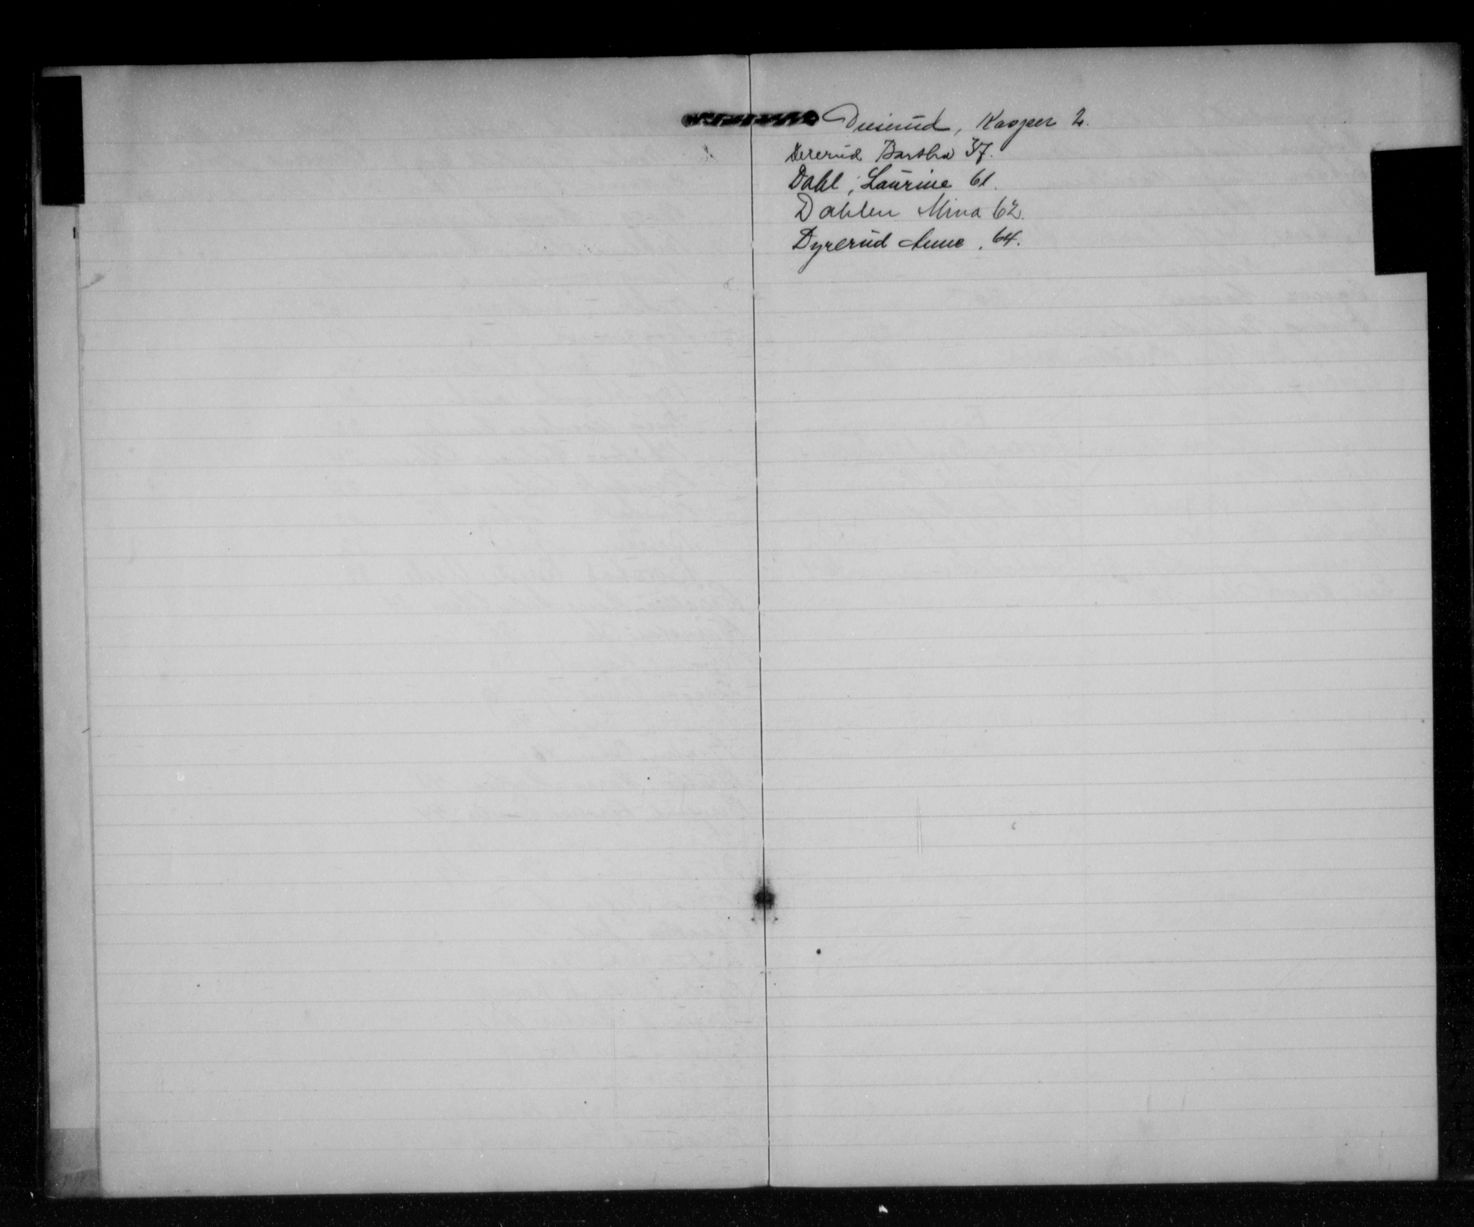 Diserud, Kasper 2.
Dererud Bertha 37.
Dahl, Laurine 61.
Dahlen Mina 62.
Dyrerud Anne. 64.